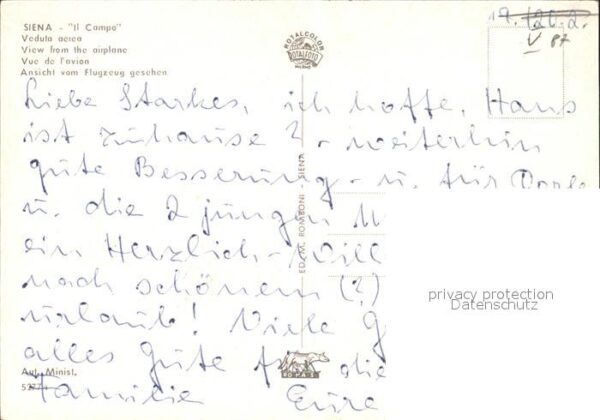 SIENA - "Il Campo"
Veduta aerea
View from the airplane
Vue de l'avion
Ansicht vom Flugzeug gesehen
ROTALCOLOR
ROTALFOTO
MILANO
19.
V 87
Liebe Starkes, ich hoffe, Hans
ist zuhause? - weiterhin
gute Besserung - u. für
u. die 2 jungen
ein Herzlich-Will
nach schönem (?)
urlaub! Viele G
alles Gute für die
Familie Eure
ED. M. ROMBONI - SIENA
Aut. Minist.
ROMA E
privacy protection
Datenschutz